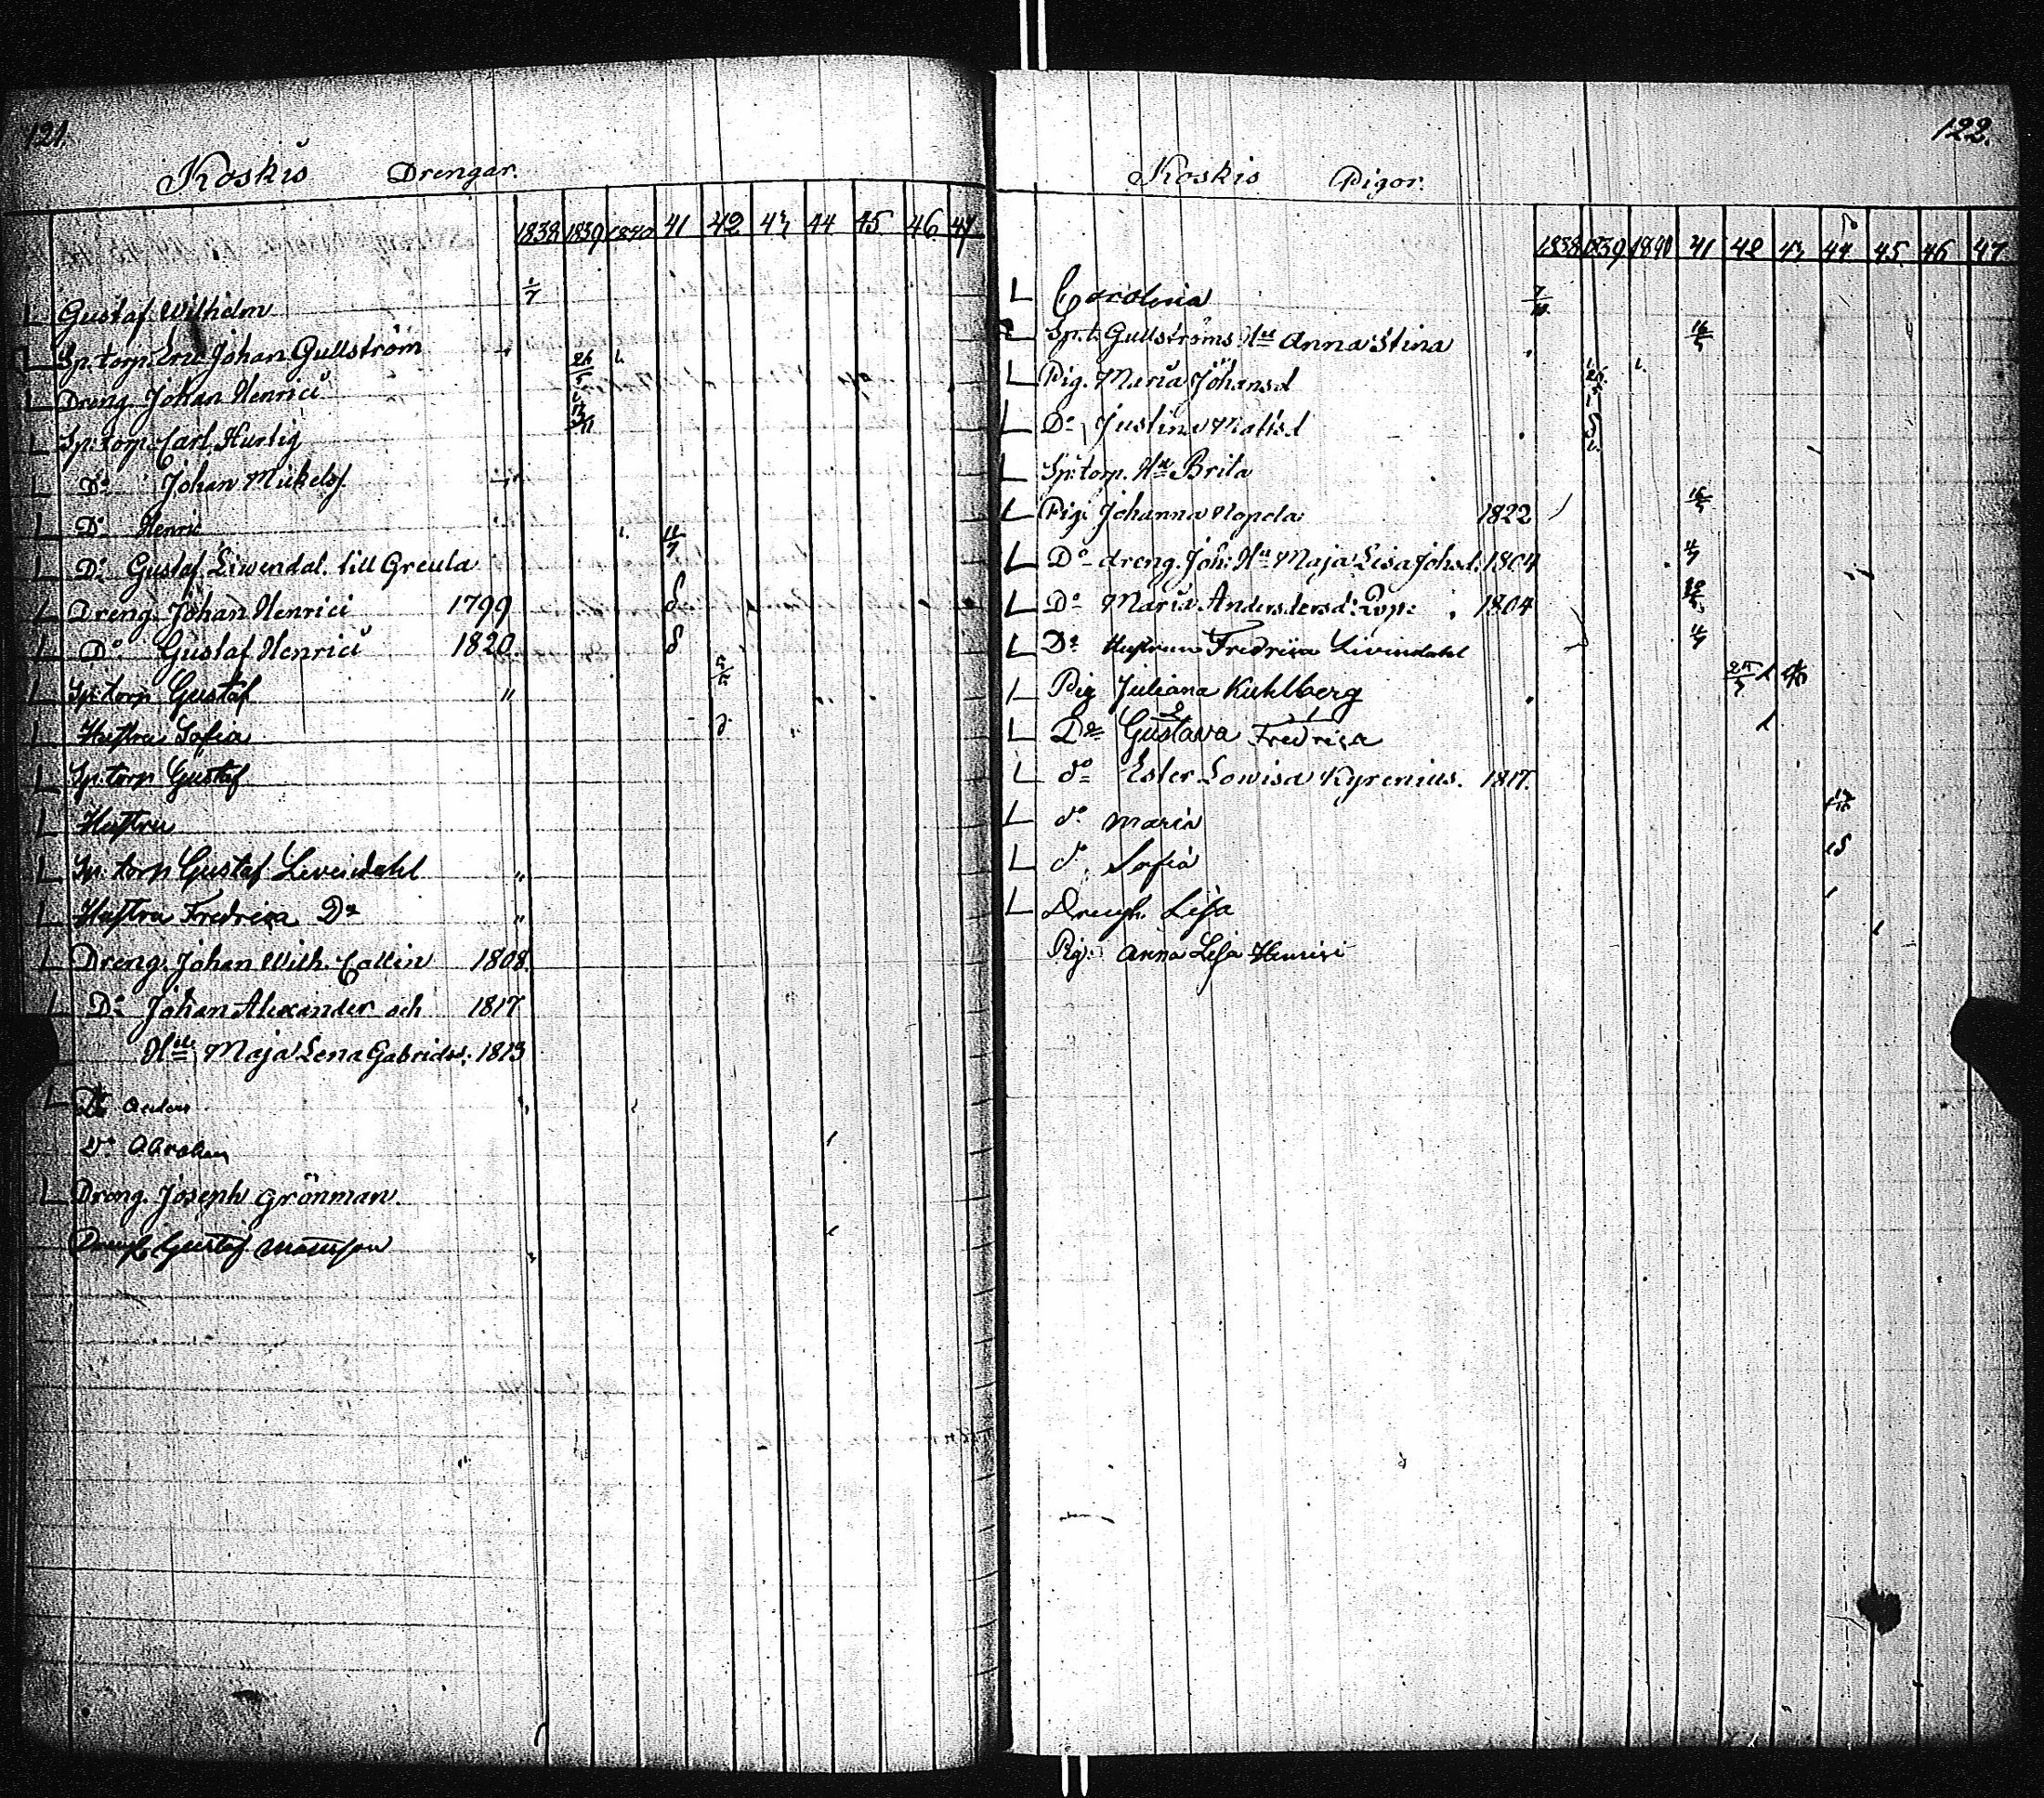 121.
Koskis Drengar.
1838 1839 1840 41 42 43 44 45 46 47
Gustaf Wilhelm 1/7
Sp. torp. Eric Johan Gullström
Dreng. Johan Henrici
Sp. torp. Carl Hurtig
Do Johan Mickels.
Do Henric 11/7
Do Gustaf Liwendal. till Greula
Dreng. Johan Henrici 1799
Do Gustaf Henrici 1820
Sp: torp Gustaf "
Hustru Sofia
Sp: torp Gustaf
Hustru
Sp: torp Gustaf Levendahl "
Hustru Fredrica Do "
Dreng. Johan Wilh. Collin 1808.
Do Johan Alexander och 1817
Hu Maja Lena Gabrielsd. 1813
Do
Do Abraham
Dreng. Joseph Grönman.
Gustaf
122.
Koskis Pigor.
1838 1839 1840 41 42 43 44 45 46 47
Carolina 7/10
Sp. t. Gullströms Hu Anna Stina 16/5
Pig. Maria Johansd
Do Justina Mattsd
Sp: torp. Hu Brita
Pig. Johanna Nopola 1822 16/5
Do dreng. Joh: Hu Maja Lisa Johsd. 1804
Do Maria 1804
Do Hustrun Fredrica Livendahl
Pig Juliana Kuhlberg
Do Gustava Fredrica
do Ester Lowisa Kyrenius. 1817.
do Maria
do Sofia
Lisa
Pig: Anna Lisa Henrici